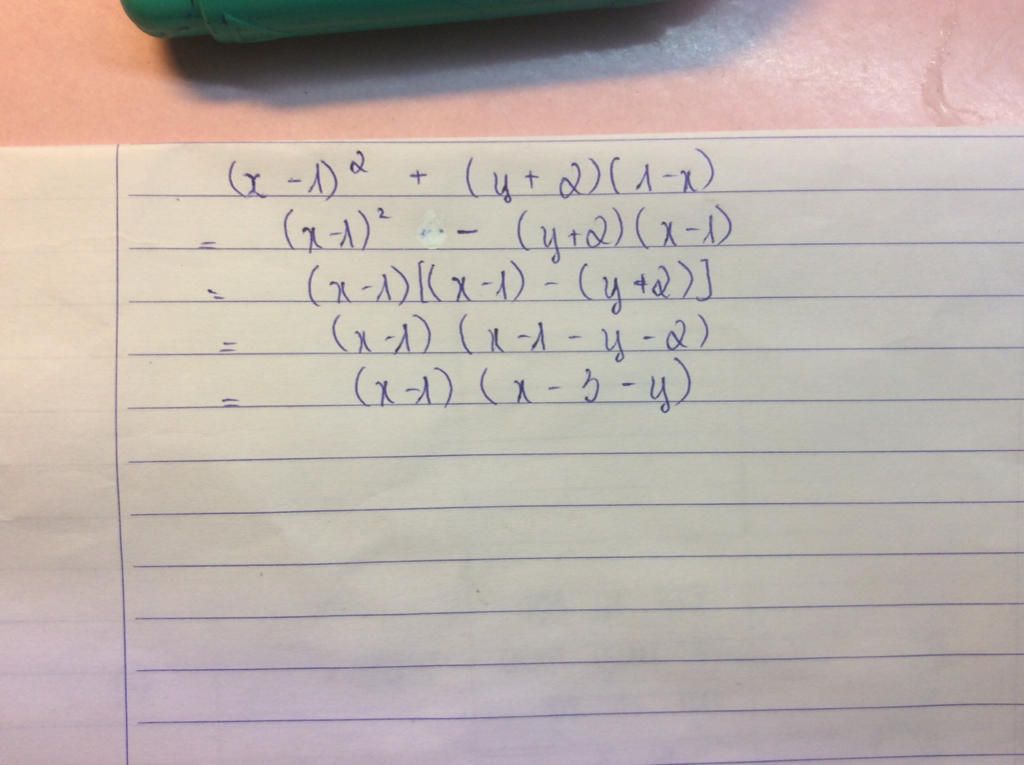 (x - 1)² + (y + 2)(1 - x)
= (x - 1)² - (y + 2)(x - 1)
= (x - 1)[(x - 1) - (y + 2)]
= (x - 1) (x - 1 - y - 2)
= (x - 1) (x - 3 - y)